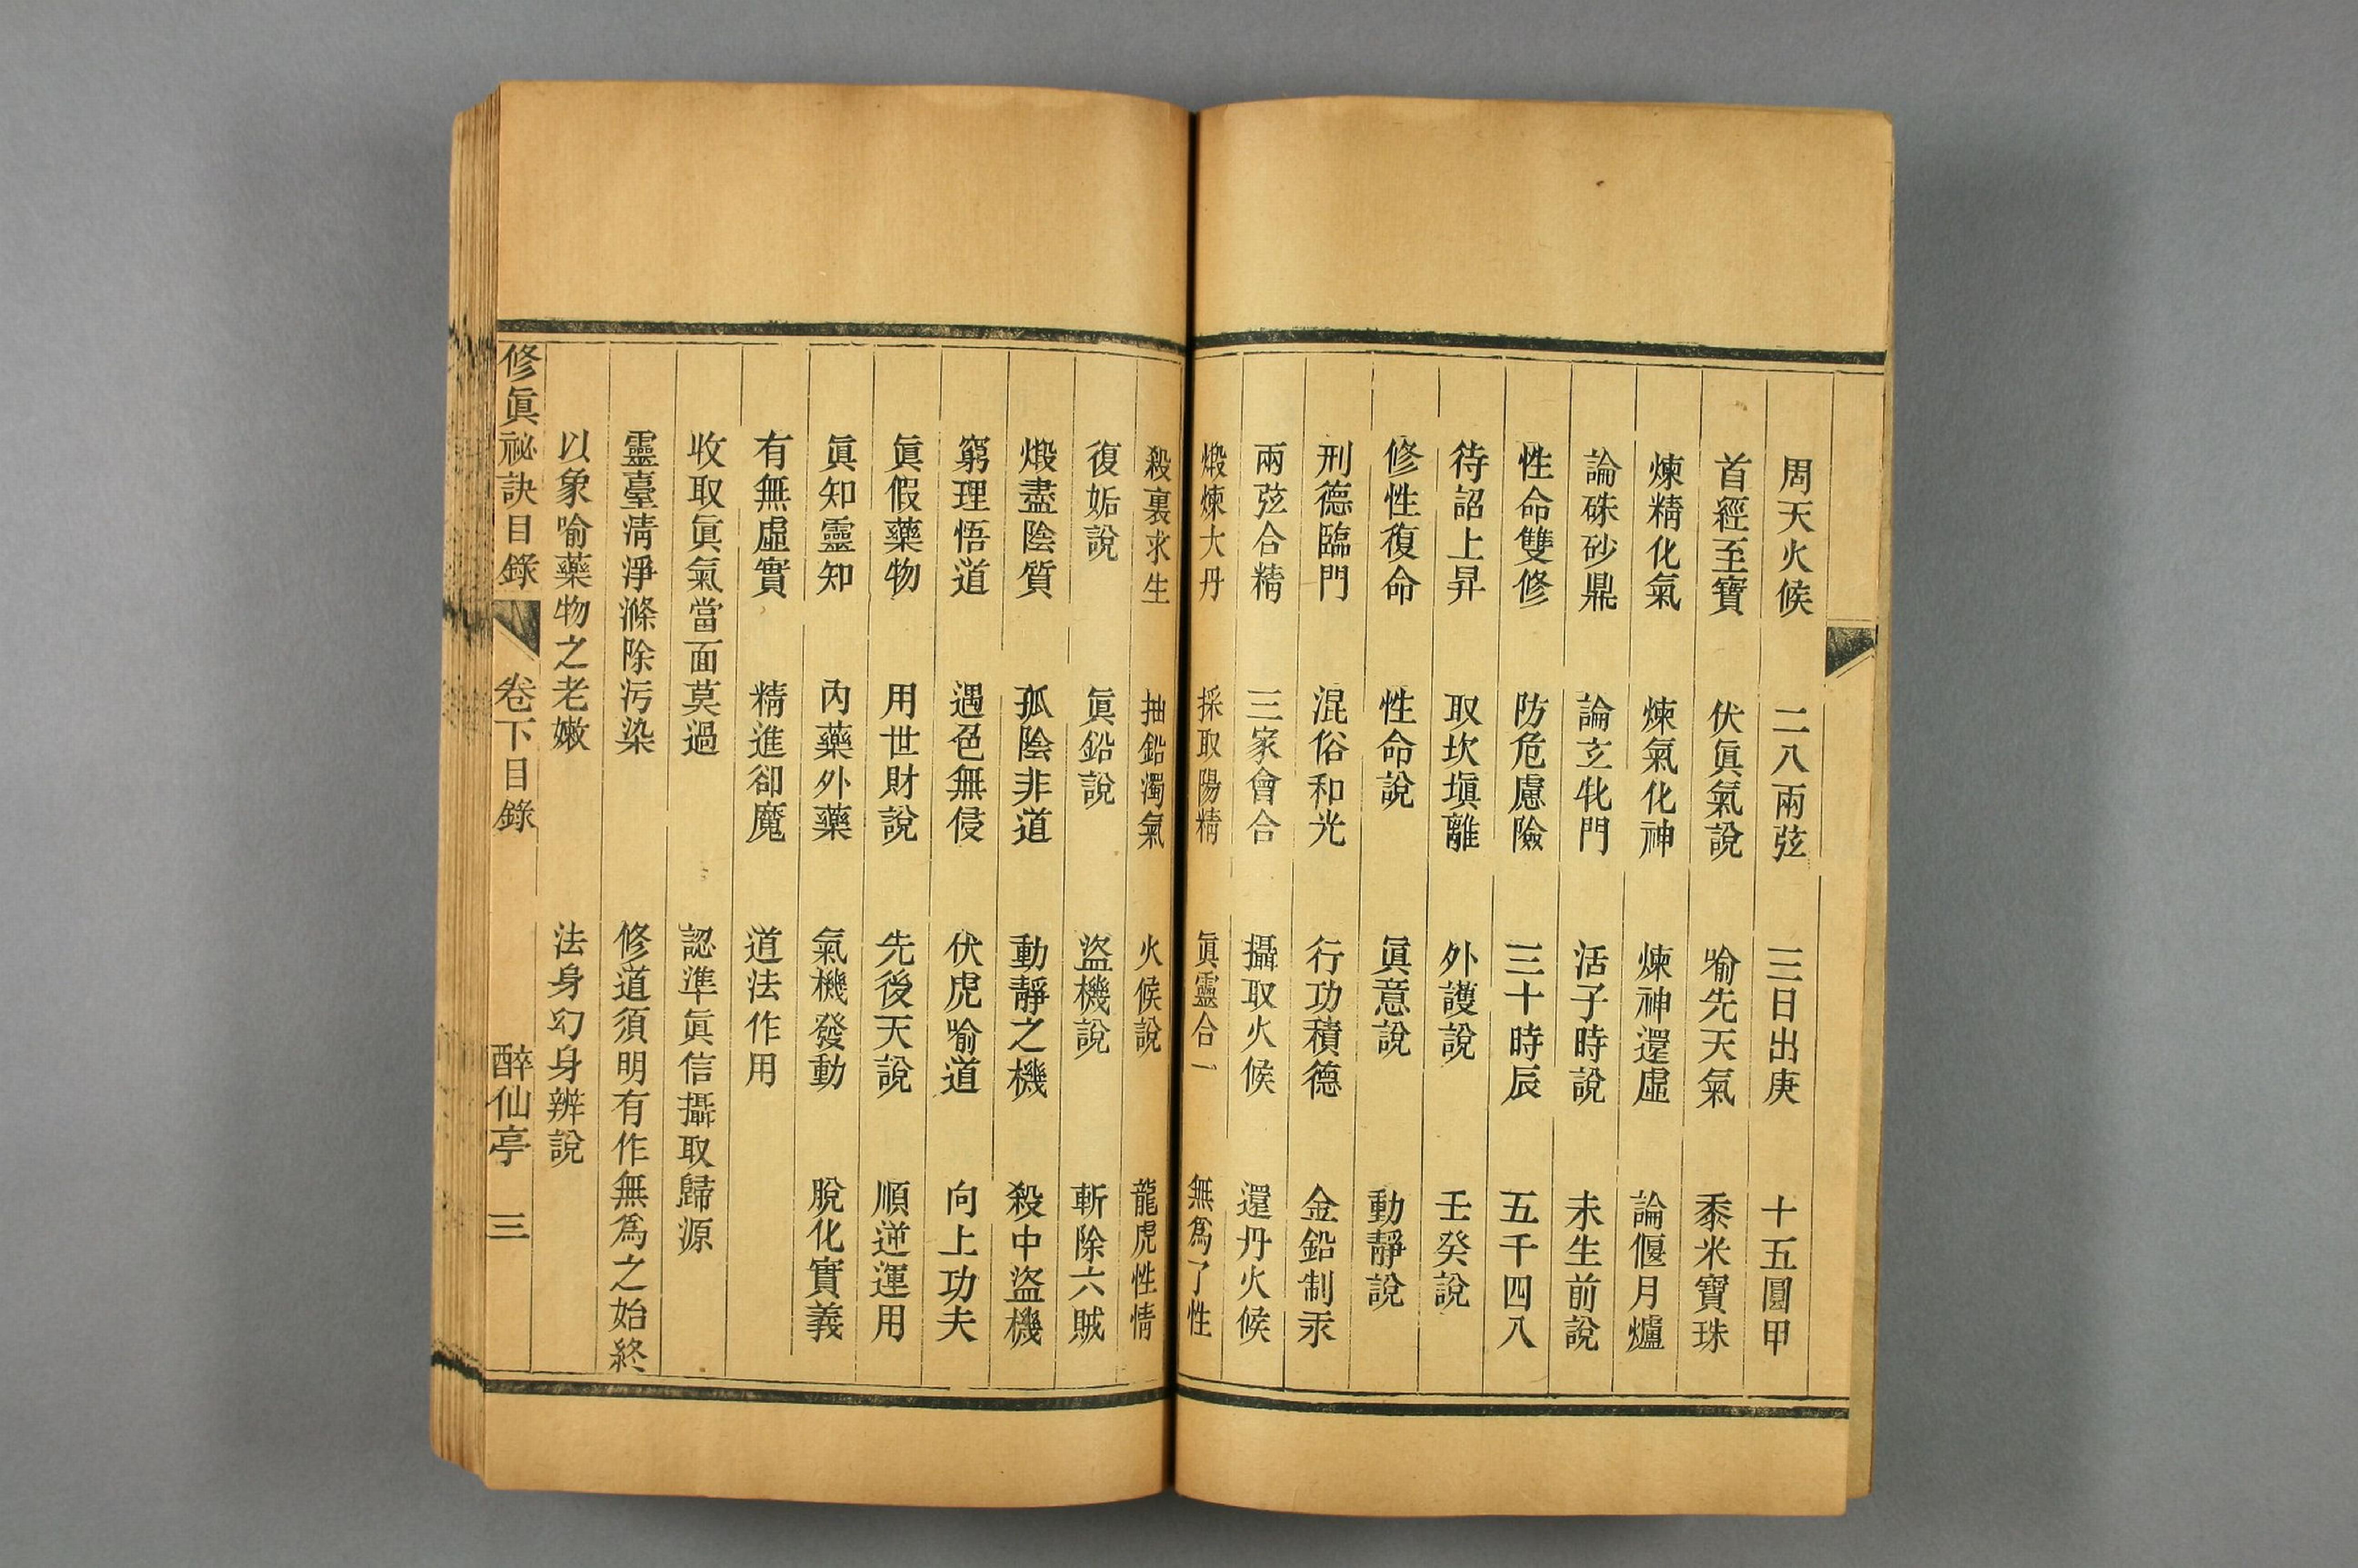 周天火候 二八兩弦 三日出庚 十五圓甲
首經至寶 伏眞氣說 喻先天氣 黍米寶珠
煉精化氣 煉氣化神 煉神還虛 論偃月爐
論硃砂鼎 論玄牝門 活子時說 未生前說
性命雙修 防危慮險 三十時辰 五千四八
待詔上昇 取坎塡離 外護說 壬癸說
修性復命 性命說 眞意說 動靜說
刑德臨門 混俗和光 行功積德 金鉛制汞
兩弦合精 三家會合 攝取火候 還丹火候
煅煉大丹 採取陽精 眞靈合一 無爲了性
殺裏求生 抽鉛濁氣 火候說 龍虎性情
復姤說 眞鉛說 盜機說 斬除六賊
煅盡陰質 孤陰非道 動靜之機 殺中盜機
窮理悟道 遇色無侵 伏虎喻道 向上功夫
眞假藥物 用世財說 先後天說 順逆運用
眞知靈知 內藥外藥 氣機發動 脫化實義
有無虛實 精進卻魔 道法作用
收取眞氣當面莫過 認準眞信攝取歸源
靈臺淸淨滌除污染 修道須明有作無爲之始終
以象喻藥物之老嫩 法身幻身辨說
修眞祕訣目錄 卷下目錄 醉仙亭 三